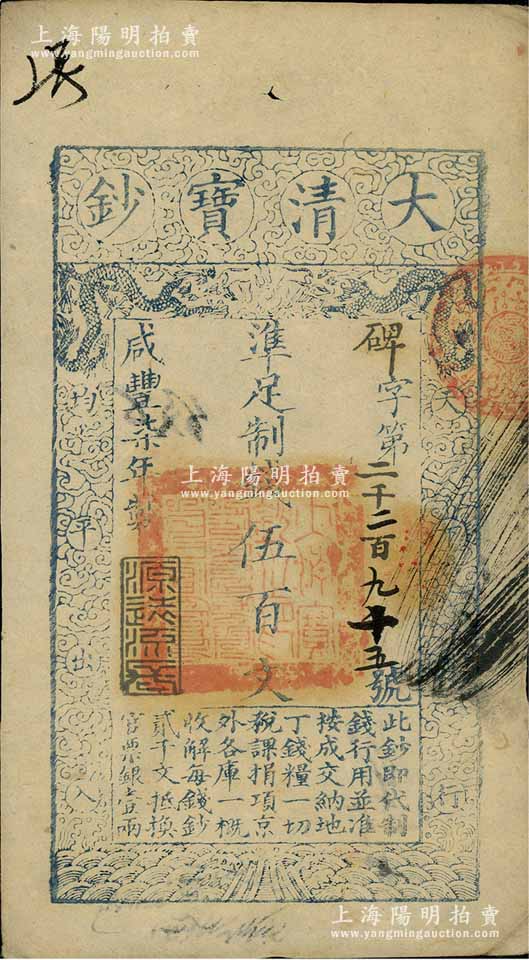 上海陽明拍賣
www.yangmingauction.com
大清寶鈔
天
行
碑字第二千二百九十五號
準足制錢伍百文
咸豐柒年製
均平出入
源遠流長
此鈔即代制
錢行用並准
按成交納地
丁錢糧一切
稅課捐項京
外各庫一概
收解每錢鈔
貳千文抵換
官票銀壹兩
上海陽明拍賣
www.yangmingauction.com
上海陽明拍賣
www.yangmingauction.com